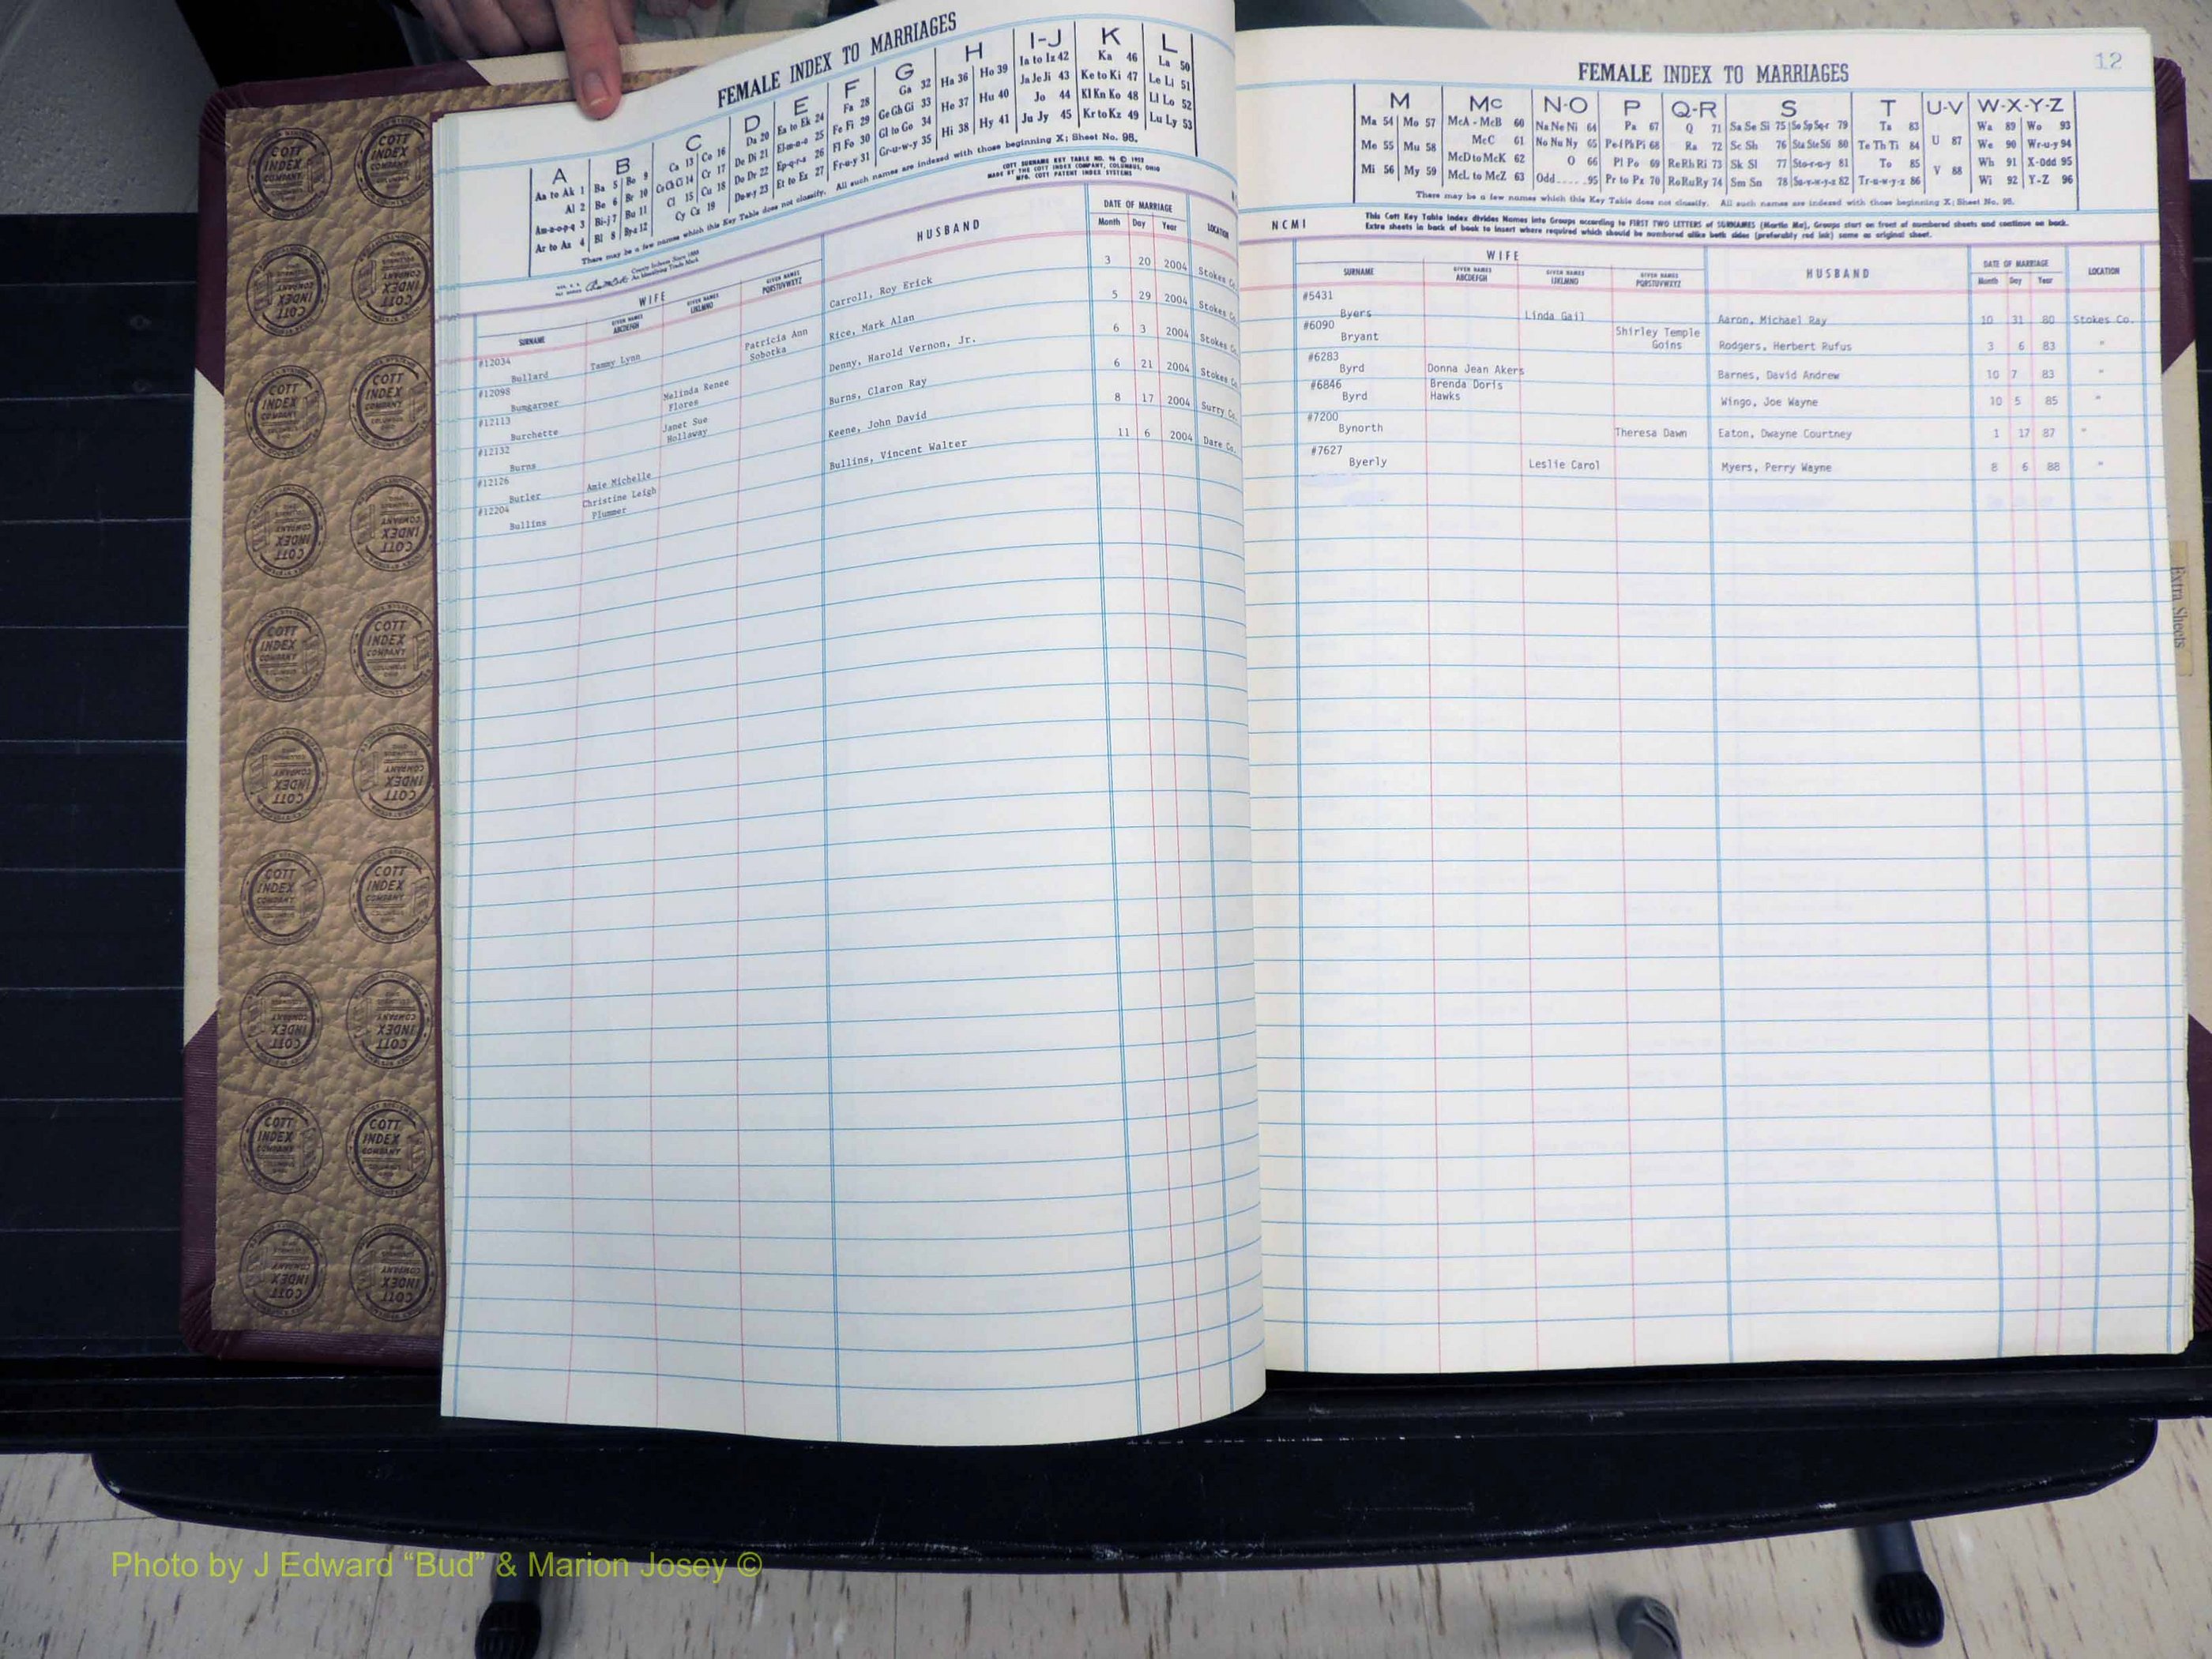 FEMALE INDEX TO MARRIAGES
A B C D E F G H I-J K L
Aa to Ak 1 Ba 5 Bo 9 Ca 13 Co 16 Da 20 Ea to Ek 24 Fa 28 Ga 32 Ha 36 Ho 39 Ia to Iz 42 Ka 46 La 50
Al 2 Be 6 Br 10 Ce Ch Ci 14 Cr 17 De Di 21 El-m-n-o 25 Fe Fi 29 Ge Gh Gi 33 He 37 Hu 40 Ja Je Ji 43 Ke to Ki 47 Le Li 51
Am-n-o-p-q 3 Bi-j 7 Bu 11 Cl 15 Cu 18 Do Dr 22 Ep-q-r-s 26 Fl Fo 30 Gl to Go 34 Hi 38 Hy 41 Jo 44 Kl Kn Ko 48 Ll Lo 52
Ar to Az 4 Bl 8 By-z 12 Cy Cz 19 Dw-y 23 Et to Ex 27 Fr-u-y 31 Gr-u-w-y 35 Ju Jy 45 Kr to Kz 49 Lu Ly 53
There may be a few names which this Key Table does not classify. All such names are indexed with those beginning X; Sheet No. 98.
COTT SURNAME KEY TABLE NO. 96 © 1952
MADE BY THE COTT INDEX COMPANY, COLUMBUS, OHIO
MFG. COTT PATENT INDEX SYSTEMS
County Indexes Since 1888
An Identifying Trade Mark
WIFE
HUSBAND
DATE OF MARRIAGE
LOCATION
SURNAME
GIVEN NAMES ABCDEFGH
GIVEN NAMES IJKLMNO
GIVEN NAMES PQRSTUVWXYZ
Month Day Year
#12034
Bullard Tammy Lynn Carroll, Roy Erick 3 20 2004 Stokes Co.
#12098
Bumgarner Patricia Ann Sobotka Rice, Mark Alan 5 29 2004 Stokes Co.
#12113
Burchette Melinda Renee Flores Denny, Harold Vernon, Jr. 6 3 2004 Stokes Co.
#12132
Burns Janet Sue Hollaway Burns, Claron Ray 6 21 2004 Stokes Co.
#12126
Butler Amie Michelle Keene, John David 8 17 2004 Surry Co.
#12204
Bullins Christine Leigh Plummer Bullins, Vincent Walter 11 6 2004 Dare Co.
12
FEMALE INDEX TO MARRIAGES
M Mc N-O P Q-R S T U-V W-X-Y-Z
Ma 54 Mo 57 McA - McB 60 Na Ne Ni 64 Pa 67 Q 71 Sa Se Si 75 So Sp Sq-r 79 Ta 83 U 87 Wa 89 Wo 93
Me 55 Mu 58 McC 61 No Nu Ny 65 Pe-f Ph Pi 68 Ra 72 Sc Sh 76 Sta Ste Sti 80 Te Th Ti 84 We 90 Wr-u-y 94
Mi 56 My 59 McD to McK 62 O 66 Pl Po 69 Re Rh Ri 73 Sk Sl 77 Sto-r-u-y 81 To 85 V 88 Wh 91 X-Odd 95
McL to McZ 63 Odd.....95 Pr to Pz 70 Ro Ru Ry 74 Sm Sn 78 Su-v-w-y-z 82 Tr-u-w-y-z 86 Wi 92 Y-Z 96
There may be a few names which this Key Table does not classify. All such names are indexed with those beginning X; Sheet No. 98.
NCMI
This Cott Key Table Index divides Names into Groups according to FIRST TWO LETTERS of SURNAMES (Martin Ma), Groups start on front of numbered sheets and continue on back.
Extra sheets in back of book to insert where required which should be numbered alike both sides (preferably red ink) same as original sheet.
WIFE
HUSBAND
DATE OF MARRIAGE
LOCATION
SURNAME
GIVEN NAMES ABCDEFGH
GIVEN NAMES IJKLMNO
GIVEN NAMES PQRSTUVWXYZ
Month Day Year
#5431
Byers Linda Gail Aaron, Michael Ray 10 31 80 Stokes Co.
#6090
Bryant Shirley Temple Goins Rodgers, Herbert Rufus 3 6 83 "
#6283
Byrd Donna Jean Akers Barnes, David Andrew 10 7 83 "
#6846
Byrd Brenda Doris Hawks Wingo, Joe Wayne 10 5 85 "
#7200
Bynorth Theresa Dawn Eaton, Dwayne Courtney 1 17 87 "
#7627
Byerly Leslie Carol Myers, Perry Wayne 8 6 88 "
Extra Sheets
COTT INDEX COMPANY
Photo by J Edward “Bud” & Marion Josey ©